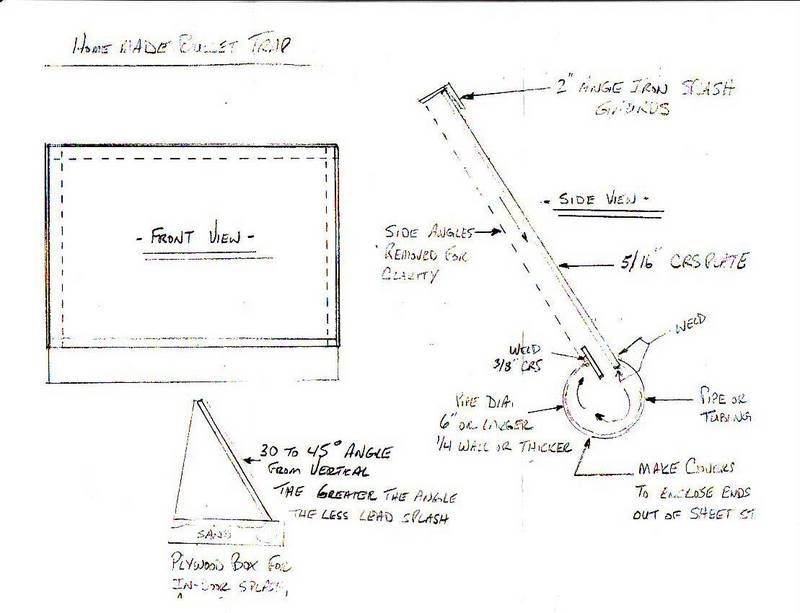 HOME MADE BULLET TRAP
2" ANGE IRON SPLASH
GUARDS
- SIDE VIEW -
- FRONT VIEW -
SIDE ANGLES
REMOVED FOR
CLARITY
5/16" CRS PLATE
WELD
WELD
3/8" CRS
PIPE DIA.
6" OR LARGER
1/4 WALL OR THICKER
PIPE OR
TUBING
MAKE COVERS
TO ENCLOSE ENDS
OUT OF SHEET ST
30 TO 45° ANGLE
FROM VERTICAL
THE GREATER THE ANGLE
THE LESS LEAD SPLASH
SAND
PLYWOOD BOX FOR
IN-DOOR SPLASH,